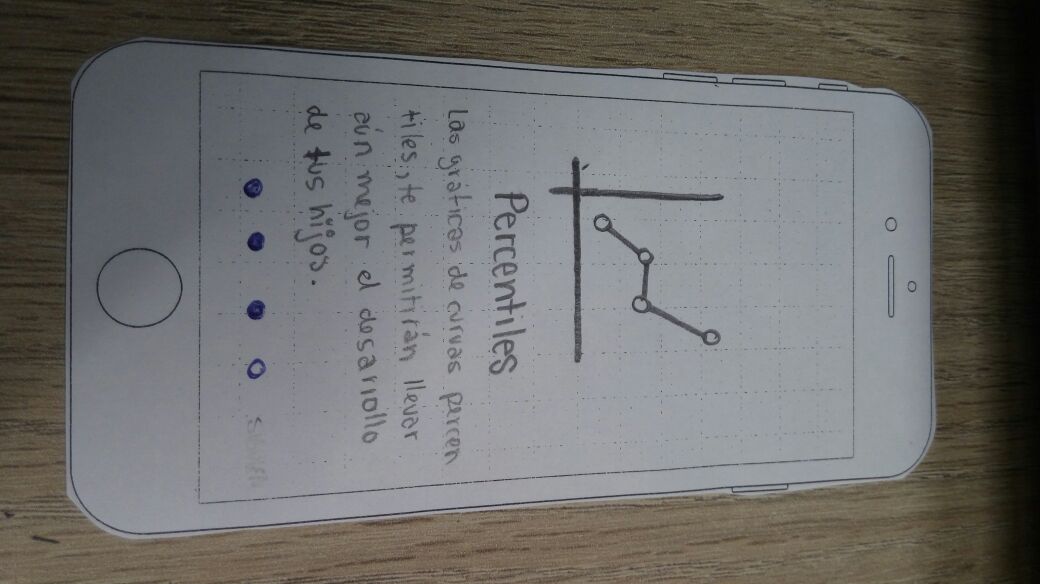 Percentiles
Las gráficas de curvas percen
tiles, te permitirán llevar
aún mejor el desarrollo
de tus hijos.